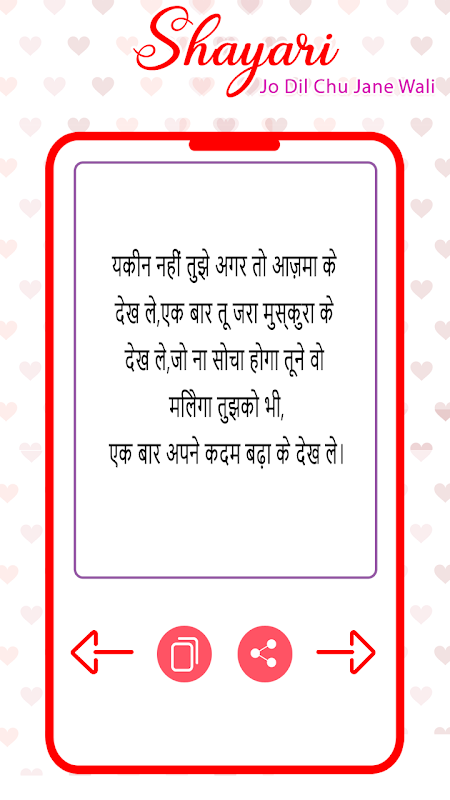 Shayari
Jo Dil Chu Jane Wali
यकीन नहीं तुझे अगर तो आज़मा के
देख ले,एक बार तू जरा मुस्कुरा के
देख ले,जो ना सोचा होगा तूने वो
मलिेगा तुझको भी,
एक बार अपने कदम बढ़ा के देख ले।